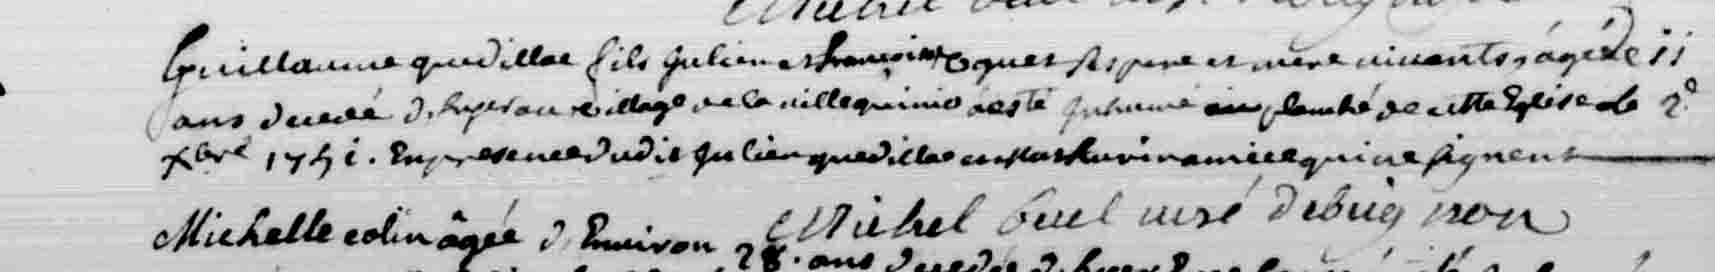 Guillaume quedillac fils Julien et françoise Coquet ses pere et mere vivants, âgé de 11
ans decedé d'hyer au village de la villequinio a esté Inhumé au planché de cette Eglise le 2e
Xbre 1751. En presence dudit Julien quedillac et qui ne signent
Michel curé de buignon
Michelle colin âgée d'Environ 28. ans decedée d'hyer